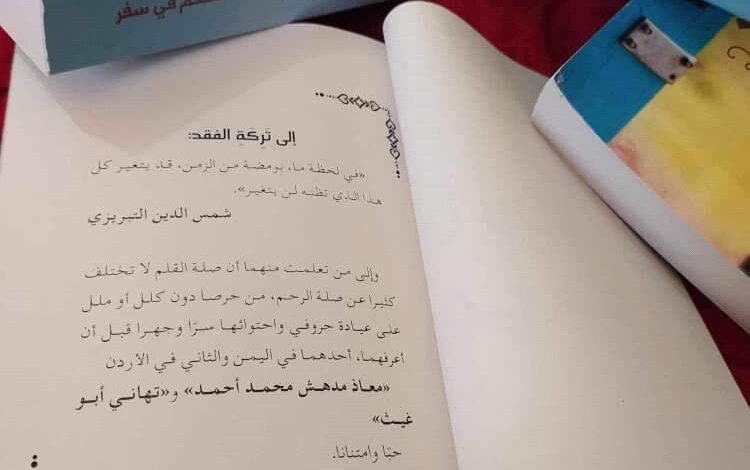 في سفر
إلى تَرِكَةِ الفقد:
«في لحظة ما، بومضة من الزمن، قد يتغير كل
هذا الذي تظنه لن يتغير».
شمس الدين التبريزي
وإلى من تعلمت منهما أن صلة القلم لا تختلف
كثيرا عن صلة الرحم، من حرصا دون كلل أو ملل
على عيادة حروفي واحتوائها سرًا وجهرا قبل أن
أعرفهما، أحدهما في اليمن والثاني في الاردن
«معاذ مدهش محمد أحمد» و«تهاني أبو
غيث»
حبّا وامتنانا.